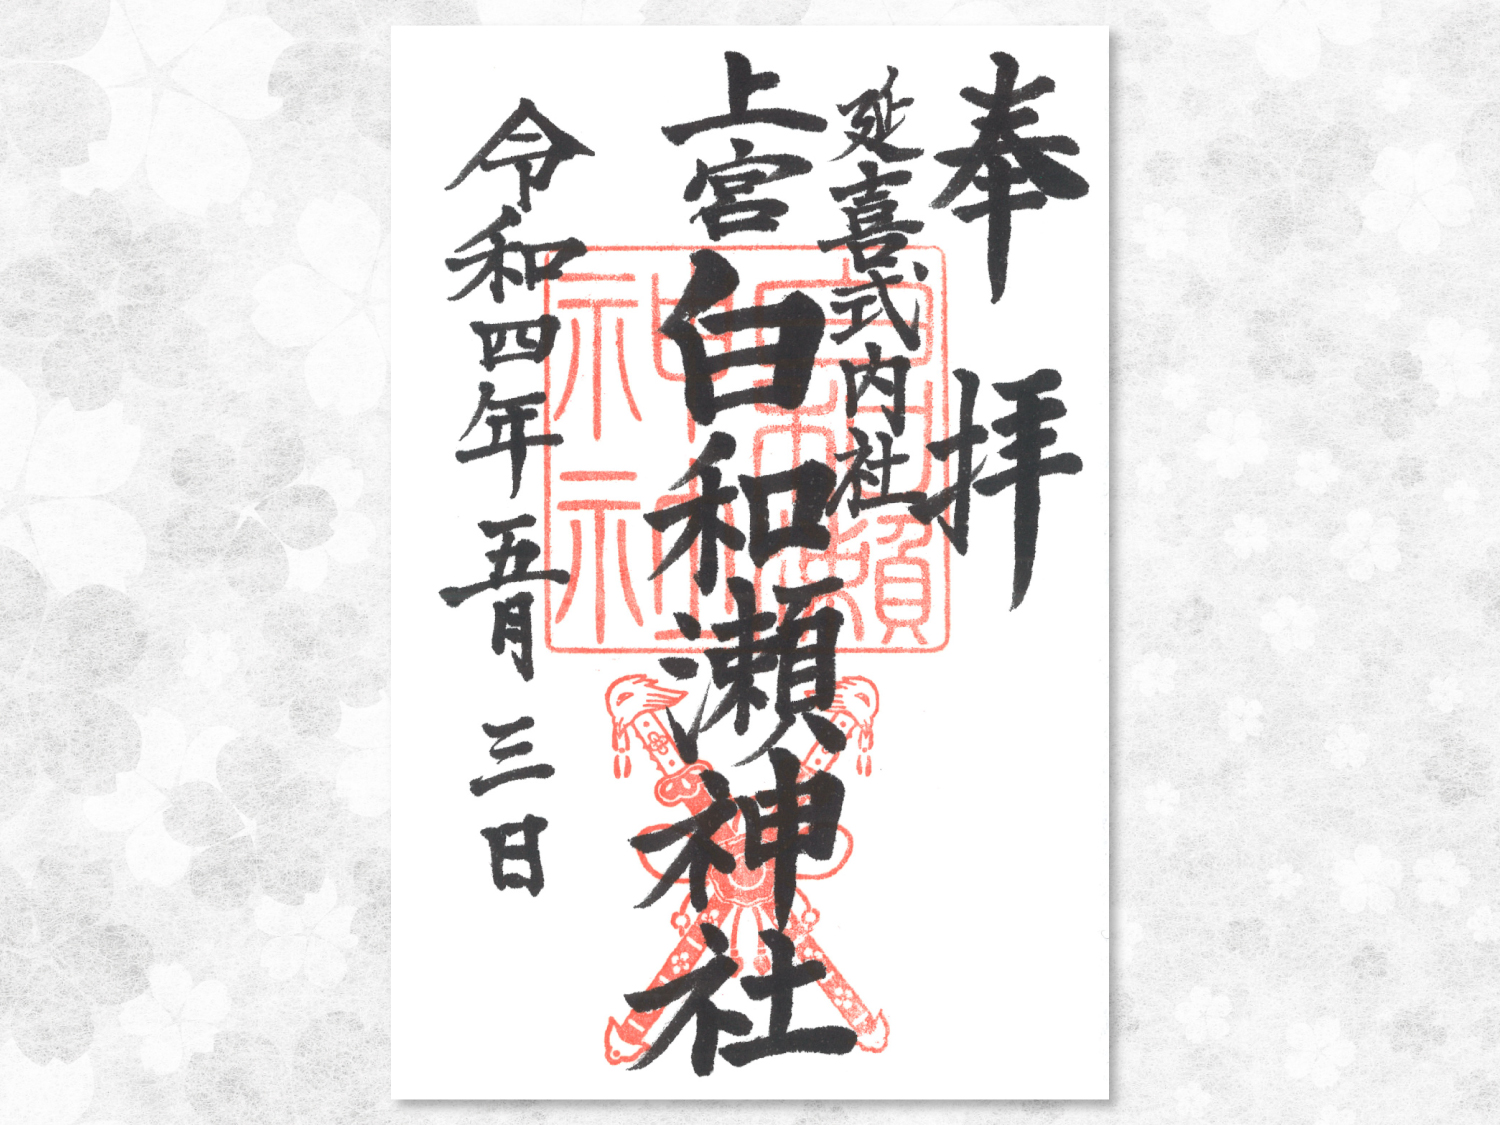 奉拝
延喜式内社
上宮白和瀬神社
令和四年五月三日